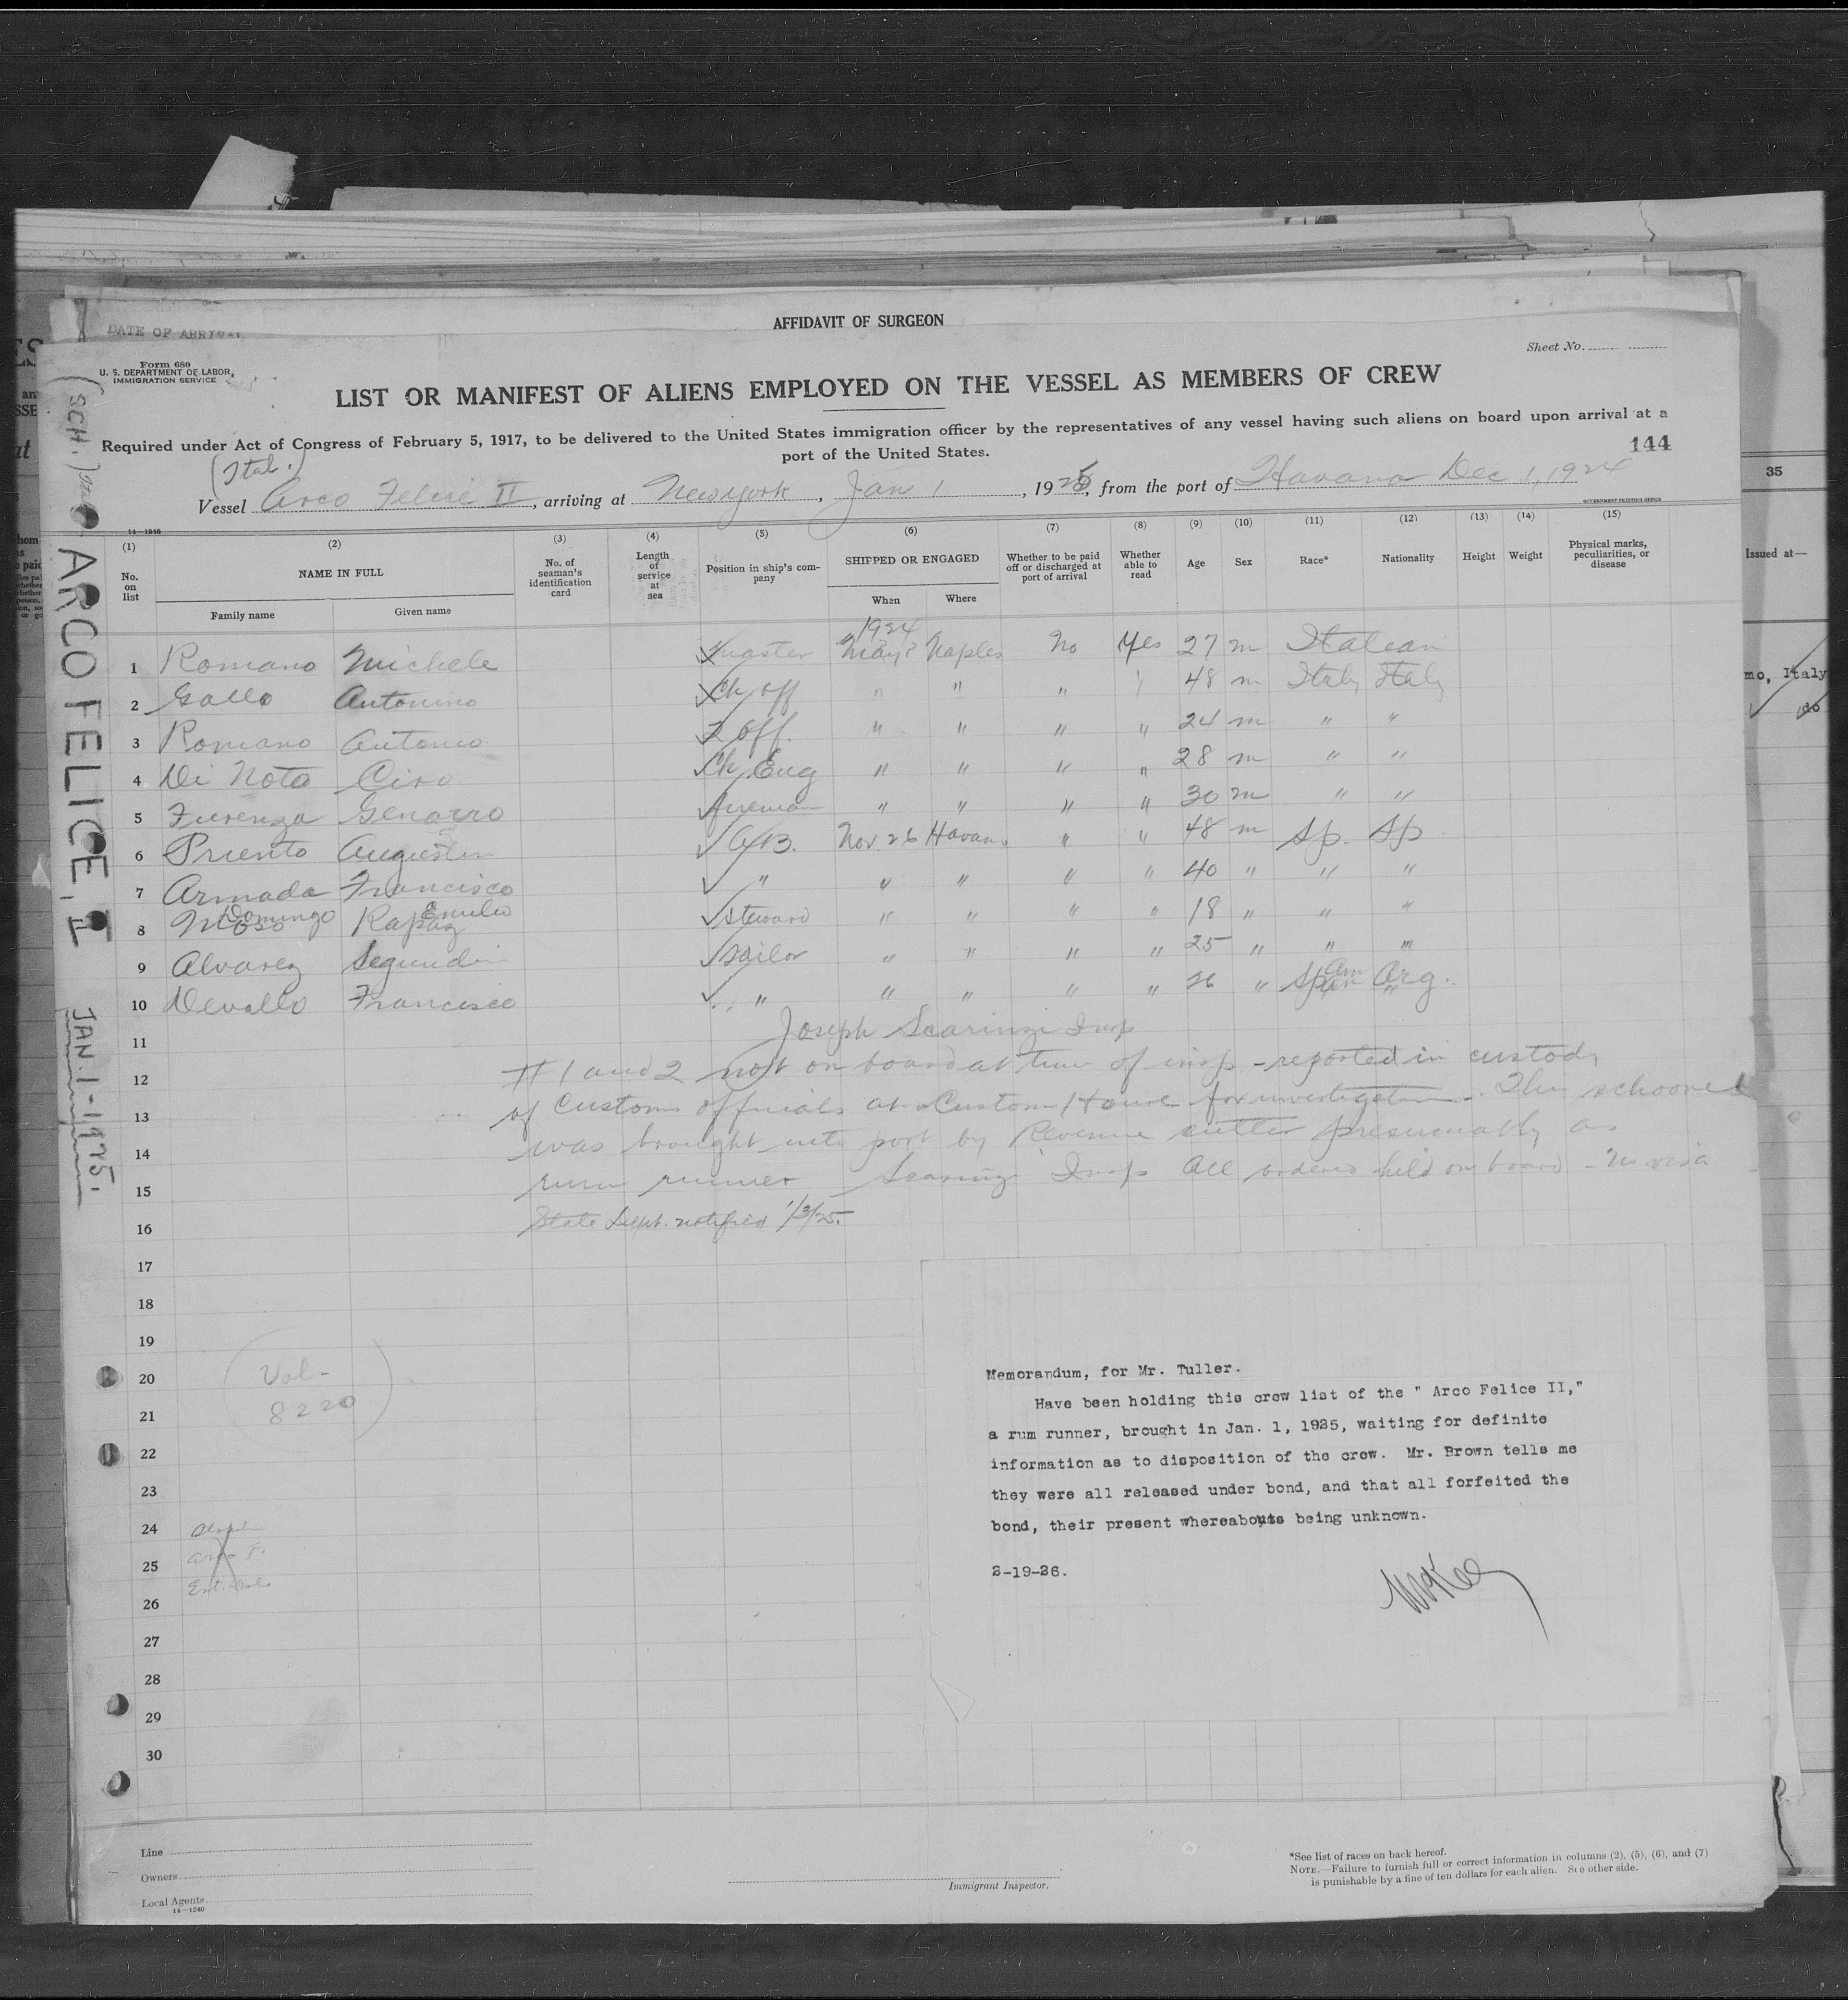 DATE OF ARRIVAL
AFFIDAVIT OF SURGEON
Form 680
U. S. DEPARTMENT OF LABOR,
IMMIGRATION SERVICE
Sheet No.
LIST OR MANIFEST OF ALIENS EMPLOYED ON THE VESSEL AS MEMBERS OF CREW
Required under Act of Congress of February 5, 1917, to be delivered to the United States immigration officer by the representatives of any vessel having such aliens on board upon arrival at a
port of the United States.
144
(Ital.)
Vessel Arco Felice II, arriving at New York, Jan 1, 1925, from the port of Havana Dec 1, 1924
GOVERNMENT PRINTING OFFICE
14—1240
(1) (2) (3) (4) (5) (6) (7) (8) (9) (10) (11) (12) (13) (14) (15)
No. on list
NAME IN FULL
Family name
Given name
No. of seaman's identification card
Length of service at sea
Position in ship's company
SHIPPED OR ENGAGED
When
Where
Whether to be paid off or discharged at port of arrival
Whether able to read
Age
Sex
Race*
Nationality
Height
Weight
Physical marks, peculiarities, or disease
1924
1 Romano Michele master May 8 Naples No Yes 27 m Italian
2 Gallo Antonino Ch off " " " " 48 m Italy Italy
3 Romano Antonio 2 off. " " " " 24 m " "
4 Di Nota Ciro Ch Eng " " " " 28 m " "
5 Genarro fireman " " " " 30 m " "
6 Priento Augustin A/B. Nov 26 Havan. " " 48 m Sp. Sp
7 Armada Francisco " " " " " 40 " " "
8 Moso Domingo Rapaz Emilio steward " " " " 18 " " "
9 Alvarez Segundin sailor " " " " 25 " " "
10 Devallo Francisco " " " " " 26 " Span Am Arg.
11
Joseph Scaringi Insp
12
# 1 and 2 not on board at time of insp - reported in custody
13
of Customs officials at Custom House for investigation. This schooner
14
was brought into port by Revenue cutter presumably as
15
rum runner Scaringi Insp All ordered held on board - No visa
16
State Dept. notified 1/3/25.
17
18
19
20
21
22
23
24
25
26
27
28
29
30
Val-
8220
Arco F.
Memorandum, for Mr. Tuller.
Have been holding this crew list of the " Arco Felice II,"
a rum runner, brought in Jan. 1, 1925, waiting for definite
information as to disposition of the crew. Mr. Brown tells me
they were all released under bond, and that all forfeited the
bond, their present whereabouts being unknown.
2-19-26.
McKee
Line
Owners
Local Agents
14—1240
Immigrant Inspector.
*See list of races on back hereof.
NOTE.—Failure to furnish full or correct information in columns (2), (5), (6), and (7)
is punishable by a fine of ten dollars for each alien. See other side.
(SCH.)
ARCO FELICE, II
JAN. 1-1925.
35
Issued at—
mo, Italy
do